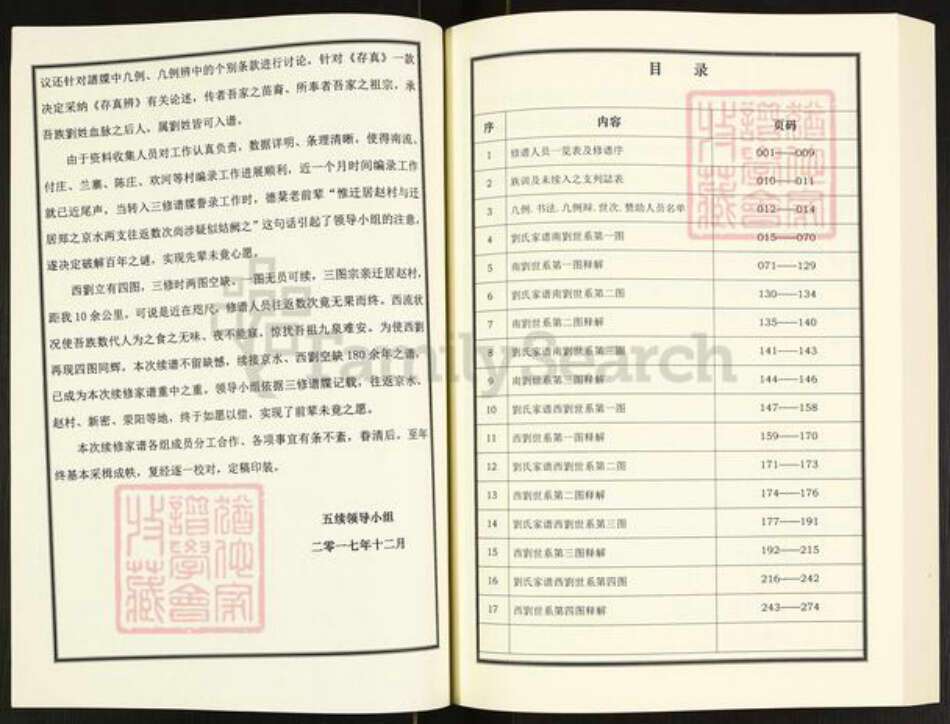 议还针对譜牒中几例、几例辨中的个别条款进行讨论。针对《存真》一款
决定采纳《存真辨》有关论述，传者吾家之苗裔、所奉者吾家之祖宗，承
吾族劉姓血脉之后人，属劉姓皆可入谱。
由于资料收集人员对工作认真负责，数据详明、条理清晰，使得南流、
付庄、兰寨、陈庄、欢河等村编录工作进展顺利，近一个月时间编录工作
就已近尾声，当转入三修谱牒誊录工作时，德粲老前辈“惟迁居赵村与迁
居郑之京水两支往返数次尚涉疑似姑阙之”这句话引起了领导小组的注意，
遂决定破解百年之谜，实现先辈未竟心愿。
西劉立有四图，三修时两图空缺、一图无员可续，三图宗亲迁居赵村，
距我 10 余公里，可说是近在咫尺，修谱人员往返数次竟无果而终。西流状
况使吾族数代人为之食之无味、夜不能寐、惊扰吾祖九泉难安。为使西劉
再现四图同辉，本次续谱不留缺憾，续接京水、西劉空缺 180 余年之谱，
已成为本次续修家谱重中之重，领导小组依据三修谱牒记载，往返京水、
赵村、新密、荥阳等地，终于如愿以偿，实现了前辈未竟之愿。
本次续修家谱各组成员分工合作、各项事宜有条不紊，眷清后，至年
终基本采楫成帙，复经逐一校对，定稿印装。
五续领导小组
二零一七年十二月
目 录
序 内容 页码
1 修谱人员一览表及修谱序 001——009
2 族训及未续入之支列誌表 010——011
3 几例. 书法. 几例辩. 世次. 赞助人员名单 012——014
4 劉氏家谱南劉世系第一图 015——070
5 南劉世系第一图释解 071——129
6 劉氏家谱南劉世系第二图 130——134
7 南劉世系第二图释解 135——140
8 劉氏家谱南劉世系第三图 141——143
9 南劉世系第三图释解 144——146
10 劉氏家谱西劉世系第一图 147——158
11 西劉世系第一图释解 159——170
12 劉氏家谱西劉世系第二图 171——173
13 西劉世系第二图释解 174——176
14 劉氏家谱西劉世系第三图 177——191
15 西劉世系第三图释解 192——215
16 劉氏家谱西劉世系第四图 216——242
17 西劉世系第四图释解 243——274
FamilySearch